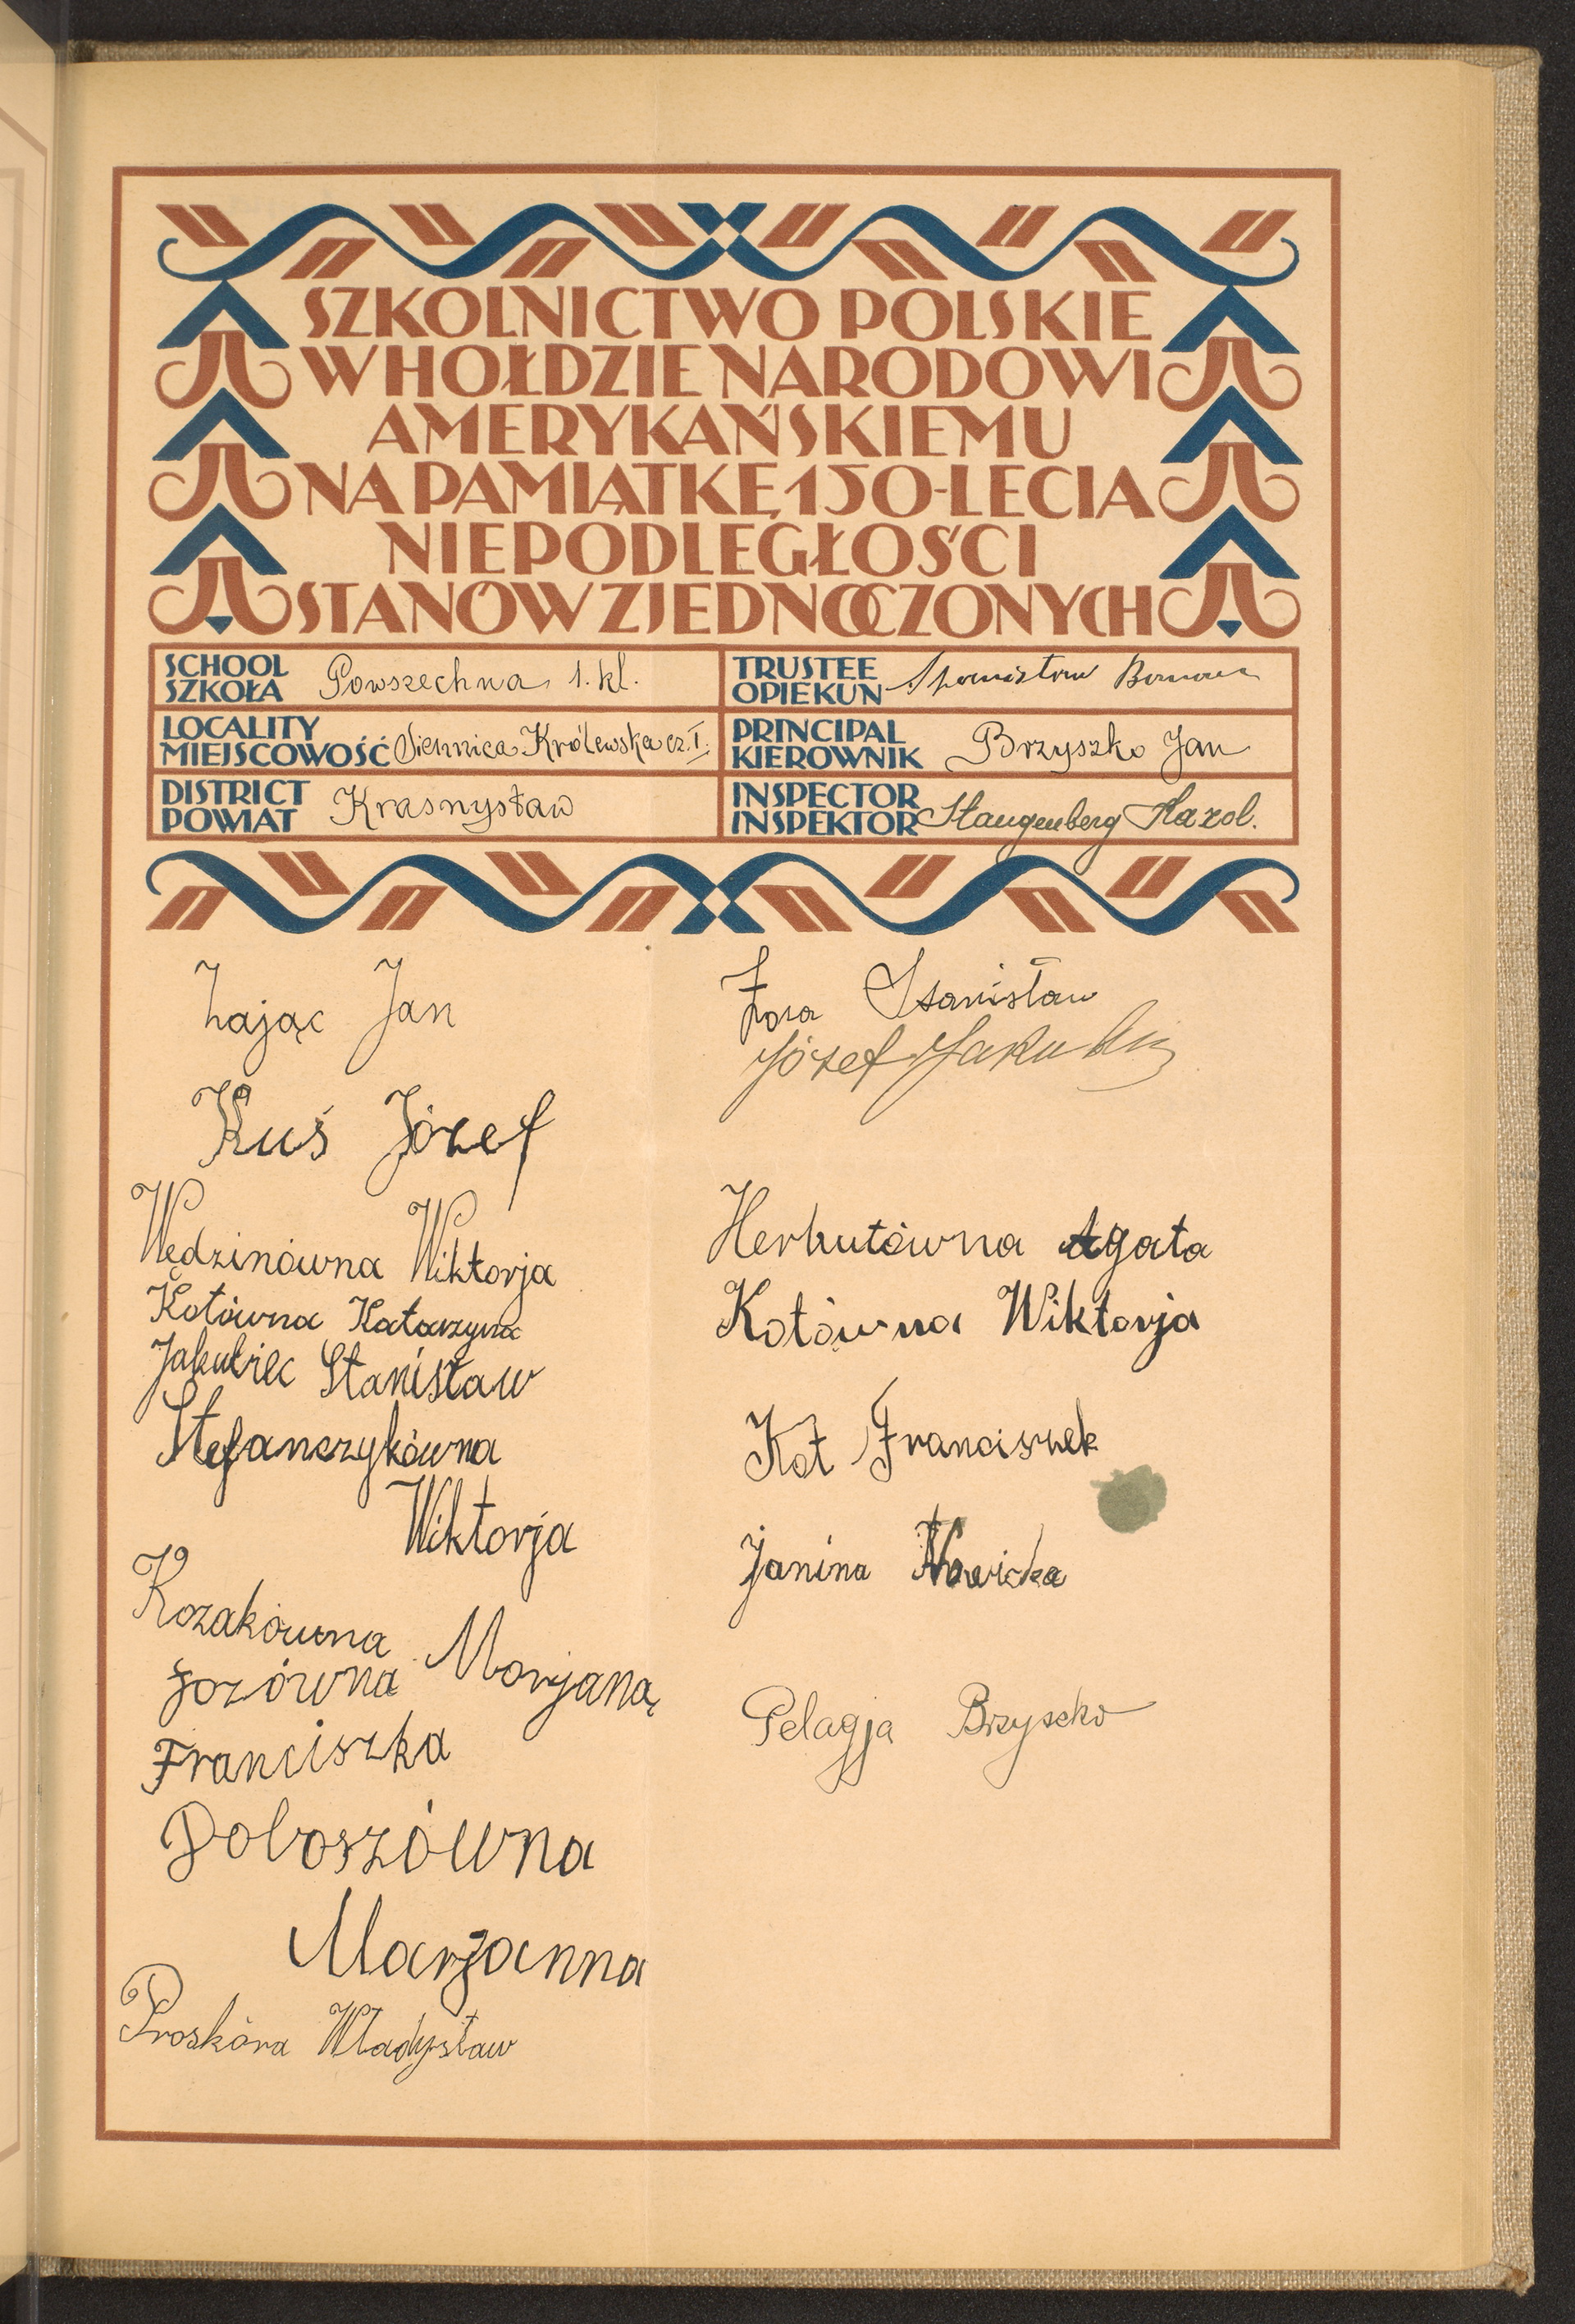 SZKOLNICTWO POLSKIE
W HOŁDZIE NARODOWI
AMERYKAŃSKIEMU
NA PAMIĄTKĘ 150-LECIA
NIEPODLEGŁOŚCI
STANÓW ZJEDNOCZONYCH
SCHOOL
SZKOŁA Powszechna 1. kl.
TRUSTEE
OPIEKUN Stanisław
LOCALITY
MIEJSCOWOŚĆ Siennica Królewska cz. I.
PRINCIPAL
KIEROWNIK Brzyszko Jan
DISTRICT
POWIAT Krasnystaw
INSPECTOR
INSPEKTOR Haugenberg Karol.
Zając Jan
Kuś Józef
Wędzinówna Wiktorja
Kotówna Katarzyna
Jakubiec Stanisław
Stefanczykówna
Wiktorja
Kozakówna Marjana
Jozówna
Franciszka
Doboszówna
Marjanna
Proskóra Władysław
Stanisław
Józef Jakubiec
Herbutówna Agata
Kotówna Wiktorja
Kot Franciszek
Janina Nowicka
Pelagja Brzyszko